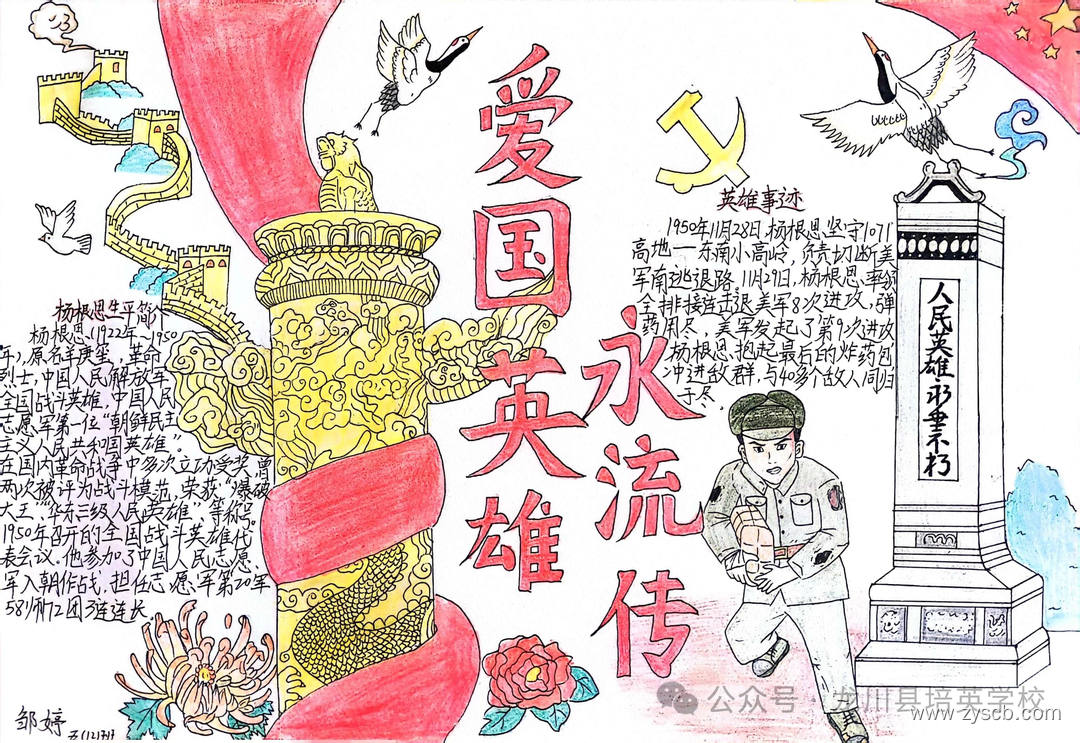 爱国英雄
永流传
杨根思生平简介
杨根思(1922年-1950
年),原名羊庚玺,革命
烈士,中国人民解放军
全国战斗英雄,中国人民
志愿军第一位"朝鲜民主
主义人民共和国英雄"。
在国内革命战争中多次立功受奖,曾
两次被评为战斗模范,荣获"爆破
大王"华东三级人民英雄"等称号。
1950年召开的全国战斗英雄代
表会议。他参加了中国人民志愿
军入朝作战,担任志愿军第20军
58师172团3连连长。
邹婷
英雄事迹
1950年11月28日,杨根思坚守1071
高地一东南小高岭,负责切断美
军南逃退路。11月29日,杨根思率领
全排接连击退美军8次进攻,弹
药用尽,美军发起了第9次进攻
杨根思抱起最后的炸药包
冲进敌群,与40多个敌人同归
于尽。
人民英雄永垂不朽
公众号·龙川县培英学校
www.zyscb.com